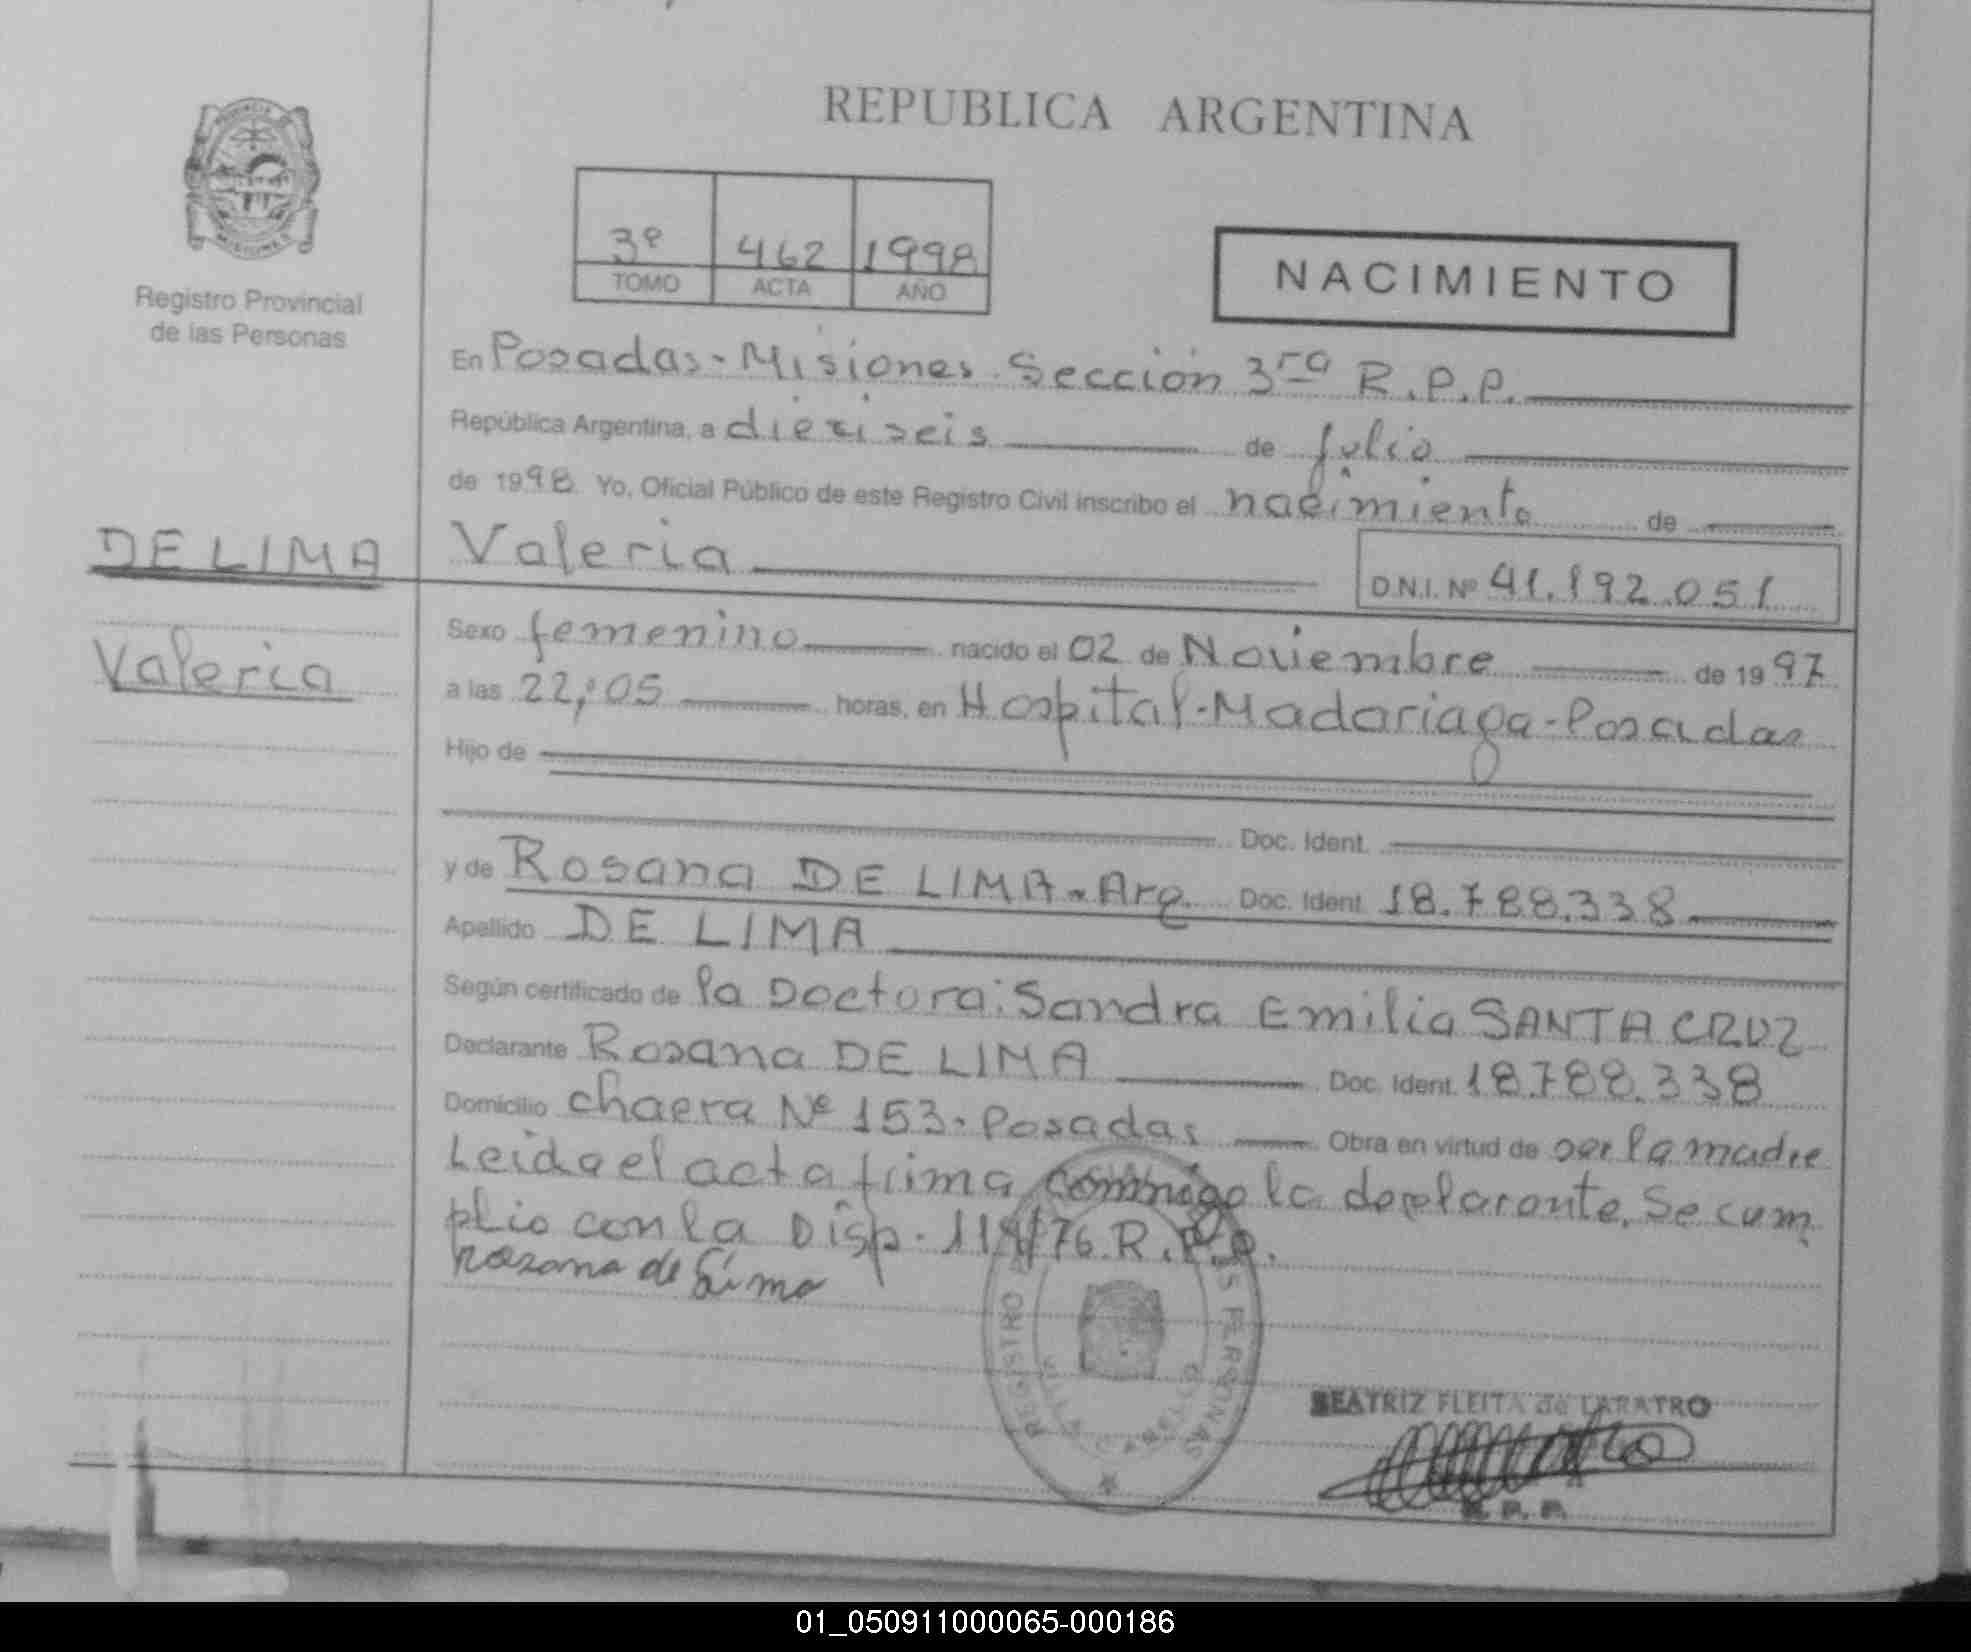 REPUBLICA ARGENTINA
PROVINCIA
MISIONES
Registro Provincial
de las Personas
3º 462 1998
TOMO ACTA AÑO
NACIMIENTO
En Posadas-Misiones. Sección 3ra R.P.P.
República Argentina, a dieciseis de Julio
de 1998. Yo, Oficial Público de este Registro Civil inscribo el nacimiento de
DE LIMA
Valeria D.N.I. Nº 41.192.051
Valeria
Sexo femenino nacido el 02 de Noviembre de 1997
a las 22,05 horas, en Hospital-Madariaga-Posadas
Hijo de
Doc. Ident.
y de Rosana DE LIMA-Arg. Doc. Ident. 18.788.338
Apellido DE LIMA
Según certificado de la Doctora: Sandra Emilia SANTA CRUZ
Declarante Rosana DE LIMA Doc. Ident. 18.788.338
Domicilio chacra Nº 153-Posadas Obra en virtud de ser la madre
Leida el acta firma conmigo la declarante. Se cum
plio con la Disp. 114/76 R.P.P.
Rosana de Lima
REGISTRO PERSONAS
BEATRIZ FLEITA de LARATRO
R. P. P.
01_050911000065-000186